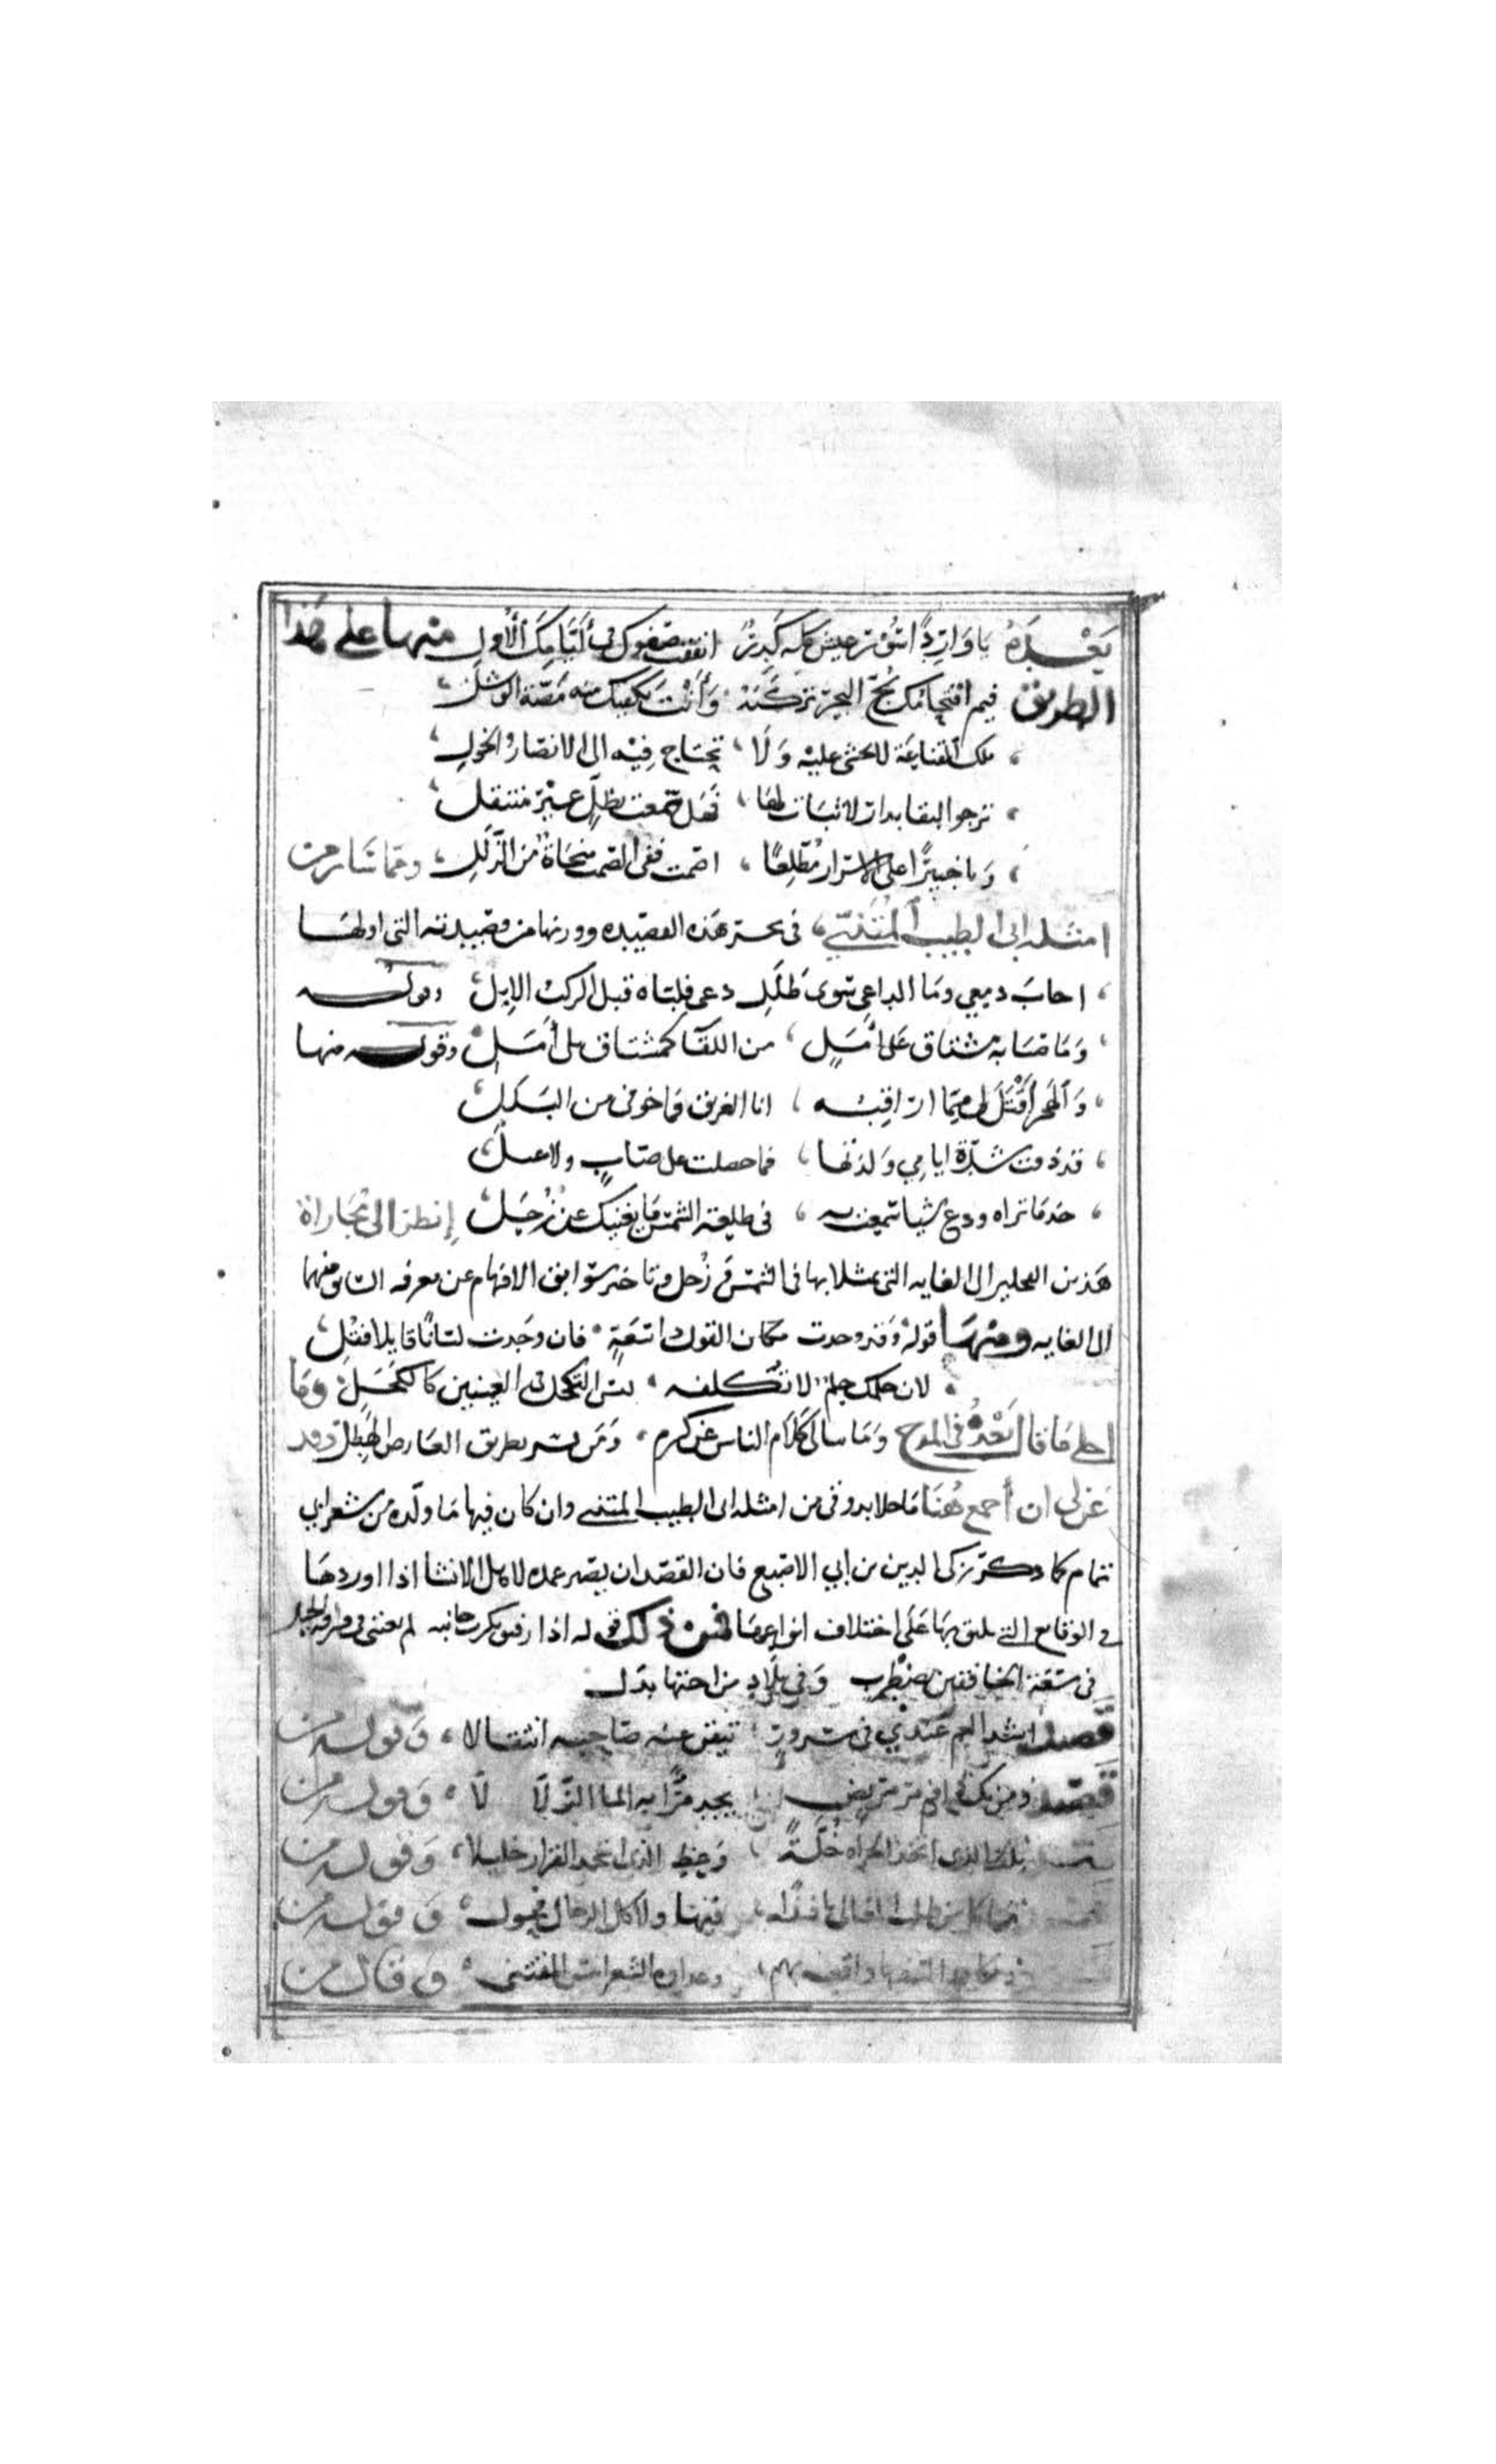 بَعْدَهُ يَا وَارِدًا سُؤْر عيش كله كَدِرٌ انفقت صفوك في أَيَّامِكَ الْأُوَلِ منها على هَذَا
الطريق فيم اقتحامك لجّ البحر تركبه وَأَنْتَ يكفيك منه مَصّة الوشلِ
ملك القناعة لا يخشى عليه وَلَا تحتاج فِيْه الى الانصار والخول
ترجو البقا بدار لا ثبات لها فَهَل سمعت بظلٍّ غيْر منتقل
وَيا خبيرًا على الاسرار مُطّلِعًا اصمت ففي الصمت منجاة من الزَّلَلِ ومما سَار من
امثلة ابي الطيب المُتَنَبّي في بحر هذه القصيده ووزنها من قصيدته التي اولها
اجابَ دمعي ومَا الداعي سوى طَلَلِ دعى فلبّاه قبل الركب الإِبِل وقوله
وَمَا صَبَابة مشتاق عَلَى أَمَلٍ من اللقآ كمشتاق بلا أَمَل وقوله منها
وَالهجر أَقْتَلُ لي ممّا اراقِبُه انا الغريق فما خوفي من البَلَل
قد ذقت شدّة ايامي وَلذتها فما حصلت على صابٍ ولا عسل
خذ مَا تراه ودع شيا سمعت به في طلعة الشمس مَا يغنيك عن زُحَل إِنظر الى مُجَاراة
هَذين الفحلين الى الغايه التي مثلا بها في الشمس وَزُحل وتاخر سوابق الافهام عن معرفه السابق منهما
الى الغايه ومنهَا قوله وَقد وجدت مكان القول ذا سَعَةٍ فان وَجدت لسَانًا قايلا فقُلِ
لان حلمك حِلمٌ لا تكلفه ليس التكحل في العينين كَالكَحَل وَمَا
احلى مَا قال بَعْدَهُ في المدح وَمَا ثناك كَلَام الناس عن كرم وَمَن يسد طريق العَارض الهَطِل وقد
عَنّ لي ان أجمع هُنَا مَا حلا بذوقي من امثلة ابي الطيب المتنبي وان كان فيها مَا ولّده من شعر ابي
تمام كما ذكره زكي الدين بن ابي الاصبع فان القصد ان يصير عمده لاهل الانشا اذا اوردها
في الوقايع التي يليق بها عَلَى اختلاف انواعها فمن ذلك قوله اذا صديق نكرت جانبه لم تعيني في فراقه الحيل
في سَعَة الخافقين مضطرب وَفي بلادٍ من اختها بدَل
قصيد اشد الغم عندي في سرور تيقن عنه صاحبه انتقالا وَقوله من
قصيد ومن يك ذا فم مر مريض يجد مُرًّا به الما الزّلالا وَقوله من
تلف الذي اتخذ الجراة خُلَّةً وَعظ الذي اتخذ الفرار خليلا وَقوله من
ما كل من طلب المعالي نافذا فيها ولا كل الرجال فحولا وَقوله من
وعداوه الشعرا بئس المقتنى وَقال من